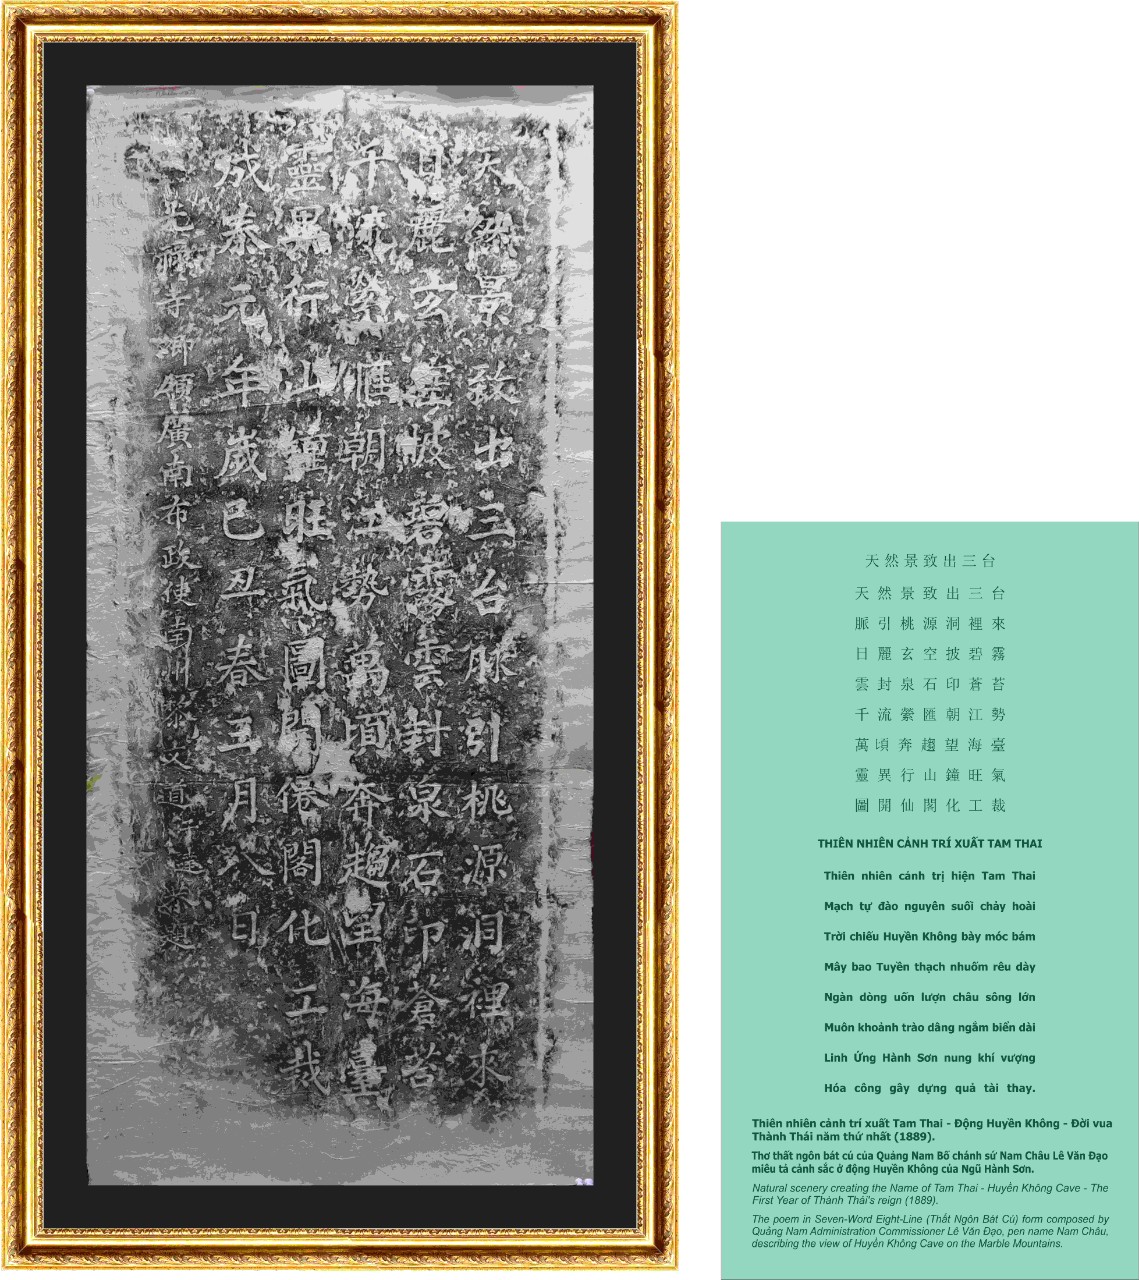 天然景致出三台脉引桃源洞裡來
日麗玄空披碧霧雲封泉石印蒼苔
千流縈匯朝江勢萬頃奔趨望海臺
靈異行山鍾旺氣圖開僊閣化工裁
成泰元年歲己丑春月八日
光祿寺卿領廣南布政使南州黎文道題
天然景致出三台
天然景致出三台
脈引桃源洞裡來
日麗玄空披碧霧
雲封泉石印蒼苔
千流縈匯朝江勢
萬頃奔趨望海臺
靈異行山鐘旺氣
圖開仙閣化工裁
THIÊN NHIÊN CẢNH TRÍ XUẤT TAM THAI
Thiên nhiên cảnh trị hiện Tam Thai
Mạch tự đào nguyên suối chảy hoài
Trời chiếu Huyền Không bày móc bám
Mây bao Tuyền thạch nhuốm rêu dày
Ngàn dòng uốn lượn châu sông lớn
Muôn khoảnh trào dâng ngắm biển dài
Linh Ứng Hành Sơn nung khí vượng
Hóa công gây dựng quả tài thay.
Thiên nhiên cảnh trí xuất Tam Thai - Động Huyền Không - Đời vua
Thành Thái năm thứ nhất (1889).
Thơ thất ngôn bát cú của Quảng Nam Bố chánh sứ Nam Châu Lê Văn Đạo
miêu tả cảnh sắc ở động Huyền Không của Ngũ Hành Sơn.
Natural scenery creating the Name of Tam Thai - Huyền Không Cave - The
First Year of Thành Thái's reign (1889).
The poem in Seven-Word Eight-Line (Thất Ngôn Bát Cú) form composed by
Quảng Nam Administration Commissioner Lê Văn Đạo, pen name Nam Châu,
describing the view of Huyền Không Cave on the Marble Mountains.